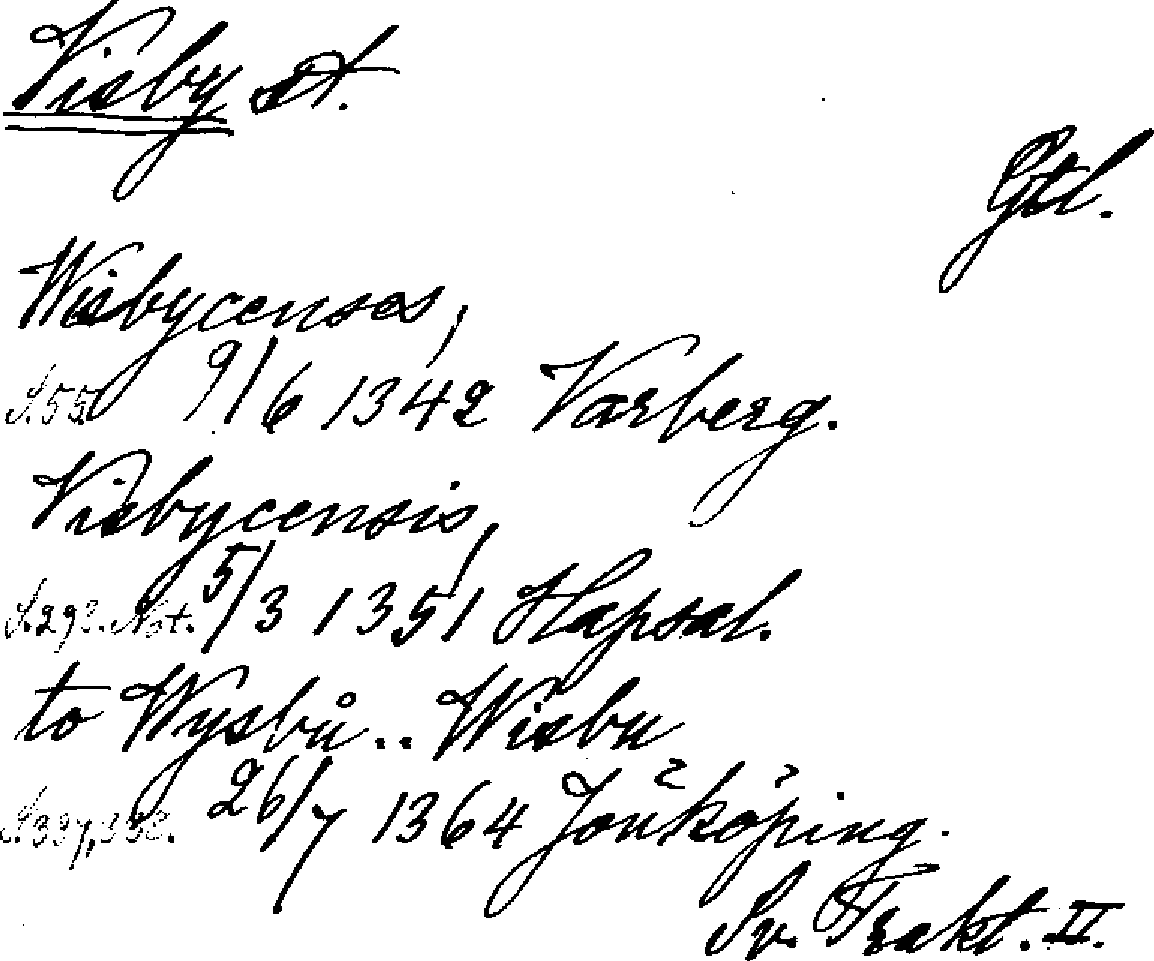 Visby st.
Gtl.
Wisbycenses,
S. 55. 9/6 1342 Varberg.
Visbycensis,
S. 292. Not. 5/3 1351 Hapsal.
to Wysbů .. Wisbu
26/7 1364 Jönköping.
Sv. Trakt. II.